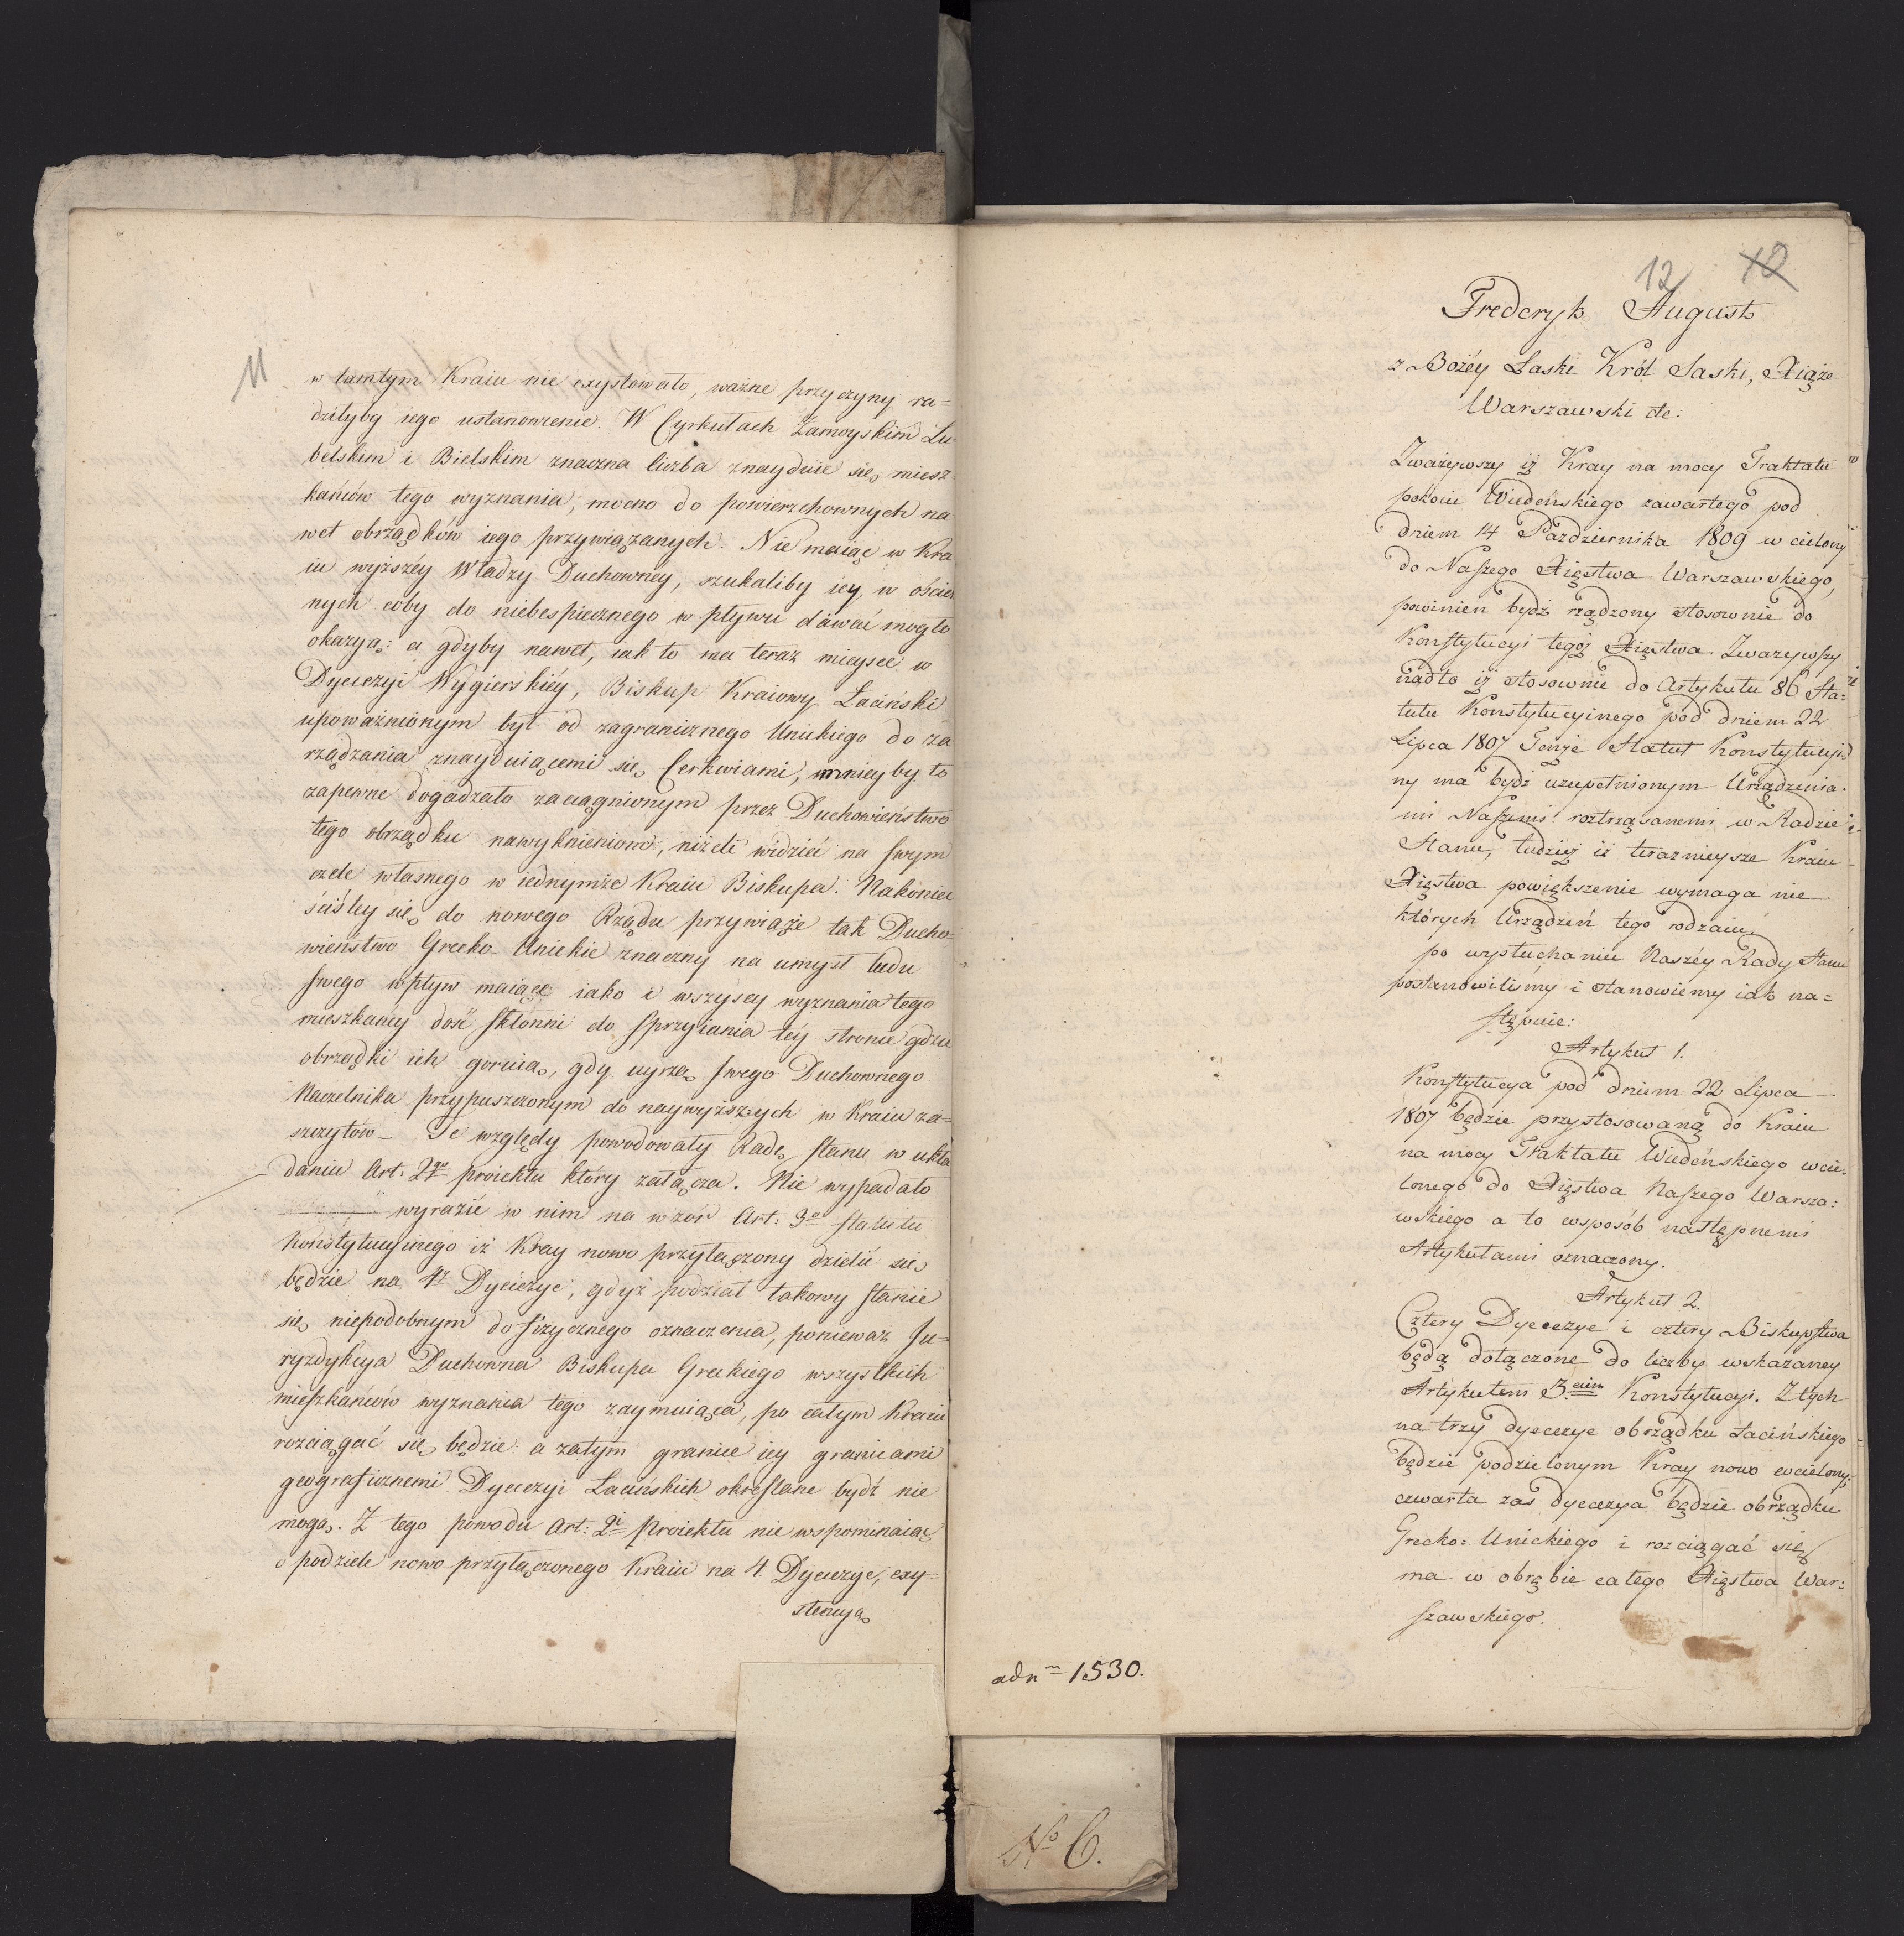 11
w tamtym Kraiu nie exystowało, ważne przyczyny ra=
dziłyby iego ustanowienie. W Cyrkułach Zamoyskim Lu
belskim i Bielskim znaczna liczba znayduie się miesz
kańców tego wyznania, mocno do powierzchownych na
wet obrządków iego przywiązanych. Nie maiąc w Kra
iu wyższéy Władzy Duchowney, szukaliby iey w ościen
nych coby do niebespiecznego wpływu dawać mogło
okazyą: a gdyby nawet, iak to ma teraz mieysce w
Dyecezyi Wygierskiéy, Biskup Kraiowy Łaciński
upoważnionym był od zagranicznego Unickiego do za
rządzania znayduiącemi się Cerkwiami, mniey by to
zapewne dogadzało zaciągnionym przez Duchowieństwo
tego obrządku nawyknieniom, niżeli widzieć na swym
czele własnego w iednymże Kraiu Biskupa. Nakoniec
ściśley się do nowego Rządu przywiąże tak Ducho=
wieństwo Grecko-Unickie znaczny na umysł ludu
swego wpływ maiące iako i wszyscy wyznania tego
mieszkańcy dość skłonni do sprzyiania téy stronie gdzie
obrządki ich goruią, gdy uyrzą swego Duchownego
Naczelnika przypuszczonym do naywyższych w Kraiu za=
szczytów – Te względy powodowały Radę Stanu w ukła
daniu Art: 2go proiektu który załącza. Nie wypadało
wyrazić w nim na wzór Art: 3o statutu
konstytucyinego iż Kray nowo przyłączony dzielić się
będzie na 4 Dyecezye, gdyż podział takowy stanie
się niepodobnym do fizycznego oznaczenia, ponieważ Ju=
ryzdykcya Duchowna Biskupa Greckiego wszystkich
mieszkańców wyznania tego zaymuiąca, po całym Kraiu
rozciągać się będzie: a zatym granice iey granicami
geograficznemi Dyecezyi Łacińskich określane bydź nie
mogą. Z tego powodu Art: 2i Proiektu nie wspominaiąc
o podziele nowo przyłączonego Kraiu na 4. Dyecezye, exy=
stencyą
12 10
Frederyk August
z Bożéy Łaski Król Saski, Xiąże
Warszawski etc:
Zważywszy iż Kray na mocy Traktatu
pokoiu Wiedeńskiego zawartego pod
dniem 14 Października 1809 wcielony
do Naszego Xięstwa Warszawskiego,
powinien bydź rządzony stosownie do
Konstytucyi tegoż Xięstwa Zważywszy
nadto iż stosownie do Artykułu 86 Sta=
tutu Konstytucyinego pod dniem 22
Lipca 1807 Tenże Statut Konstytucyi=
ny ma bydź uzupełnionym Urządzenia=
mi Naszemi roztrząsanemi w Radzie
Stanu, tudzież iż teraznieysze Kraiu
Xięstwa powiększenie wymaga nie
których Urządzeń tego rodzaiu
po wysłuchaniu Naszéy Rady Stanu
postanowiliśmy i stanowiemy iak na=
stępuie:
Artykuł 1.
Konstytucya pod dniem 22 Lipca
1807 będzie przystosowaną do Kraiu
na mocy Traktatu Wiedeńskiego wcie=
lonego do Xięstwa Naszego Warsza=
wskiego a to wsposób następnemi
Artykułami oznaczony.
Artykuł 2.
Cztery Dyecezye i cztery Biskupstwa
będą dołączone do liczby wskazaney
Artykułem 3.ciem Konstytucyi. Z tych
na trzy dyecezye obrządku Łacińskiego
będzie podzielonym Kray nowo wcielony;
czwarta zaś dyecezya będzie obrządku
Grecko=Unickiego i rozciągać się
ma w obrębie całego Xięstwa War=
szawskiego.
adn 1530.
No 6.